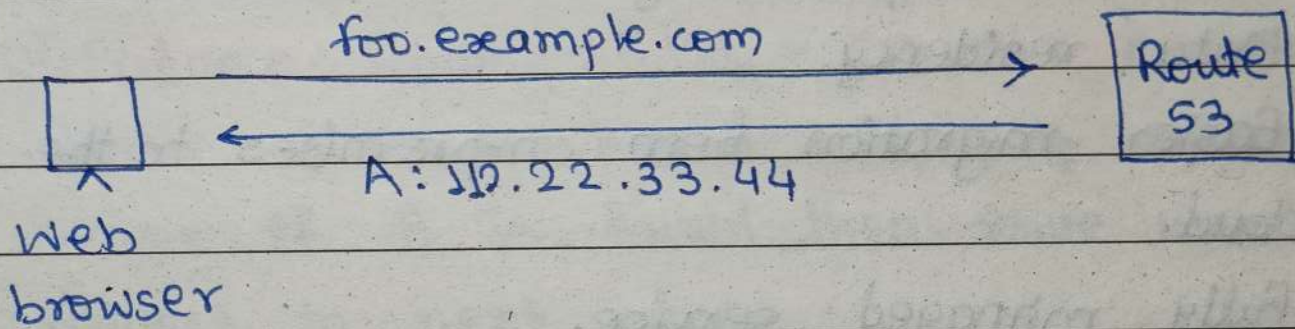 foo.example.com
Route
53
A: 112.22.33.44
web
browser